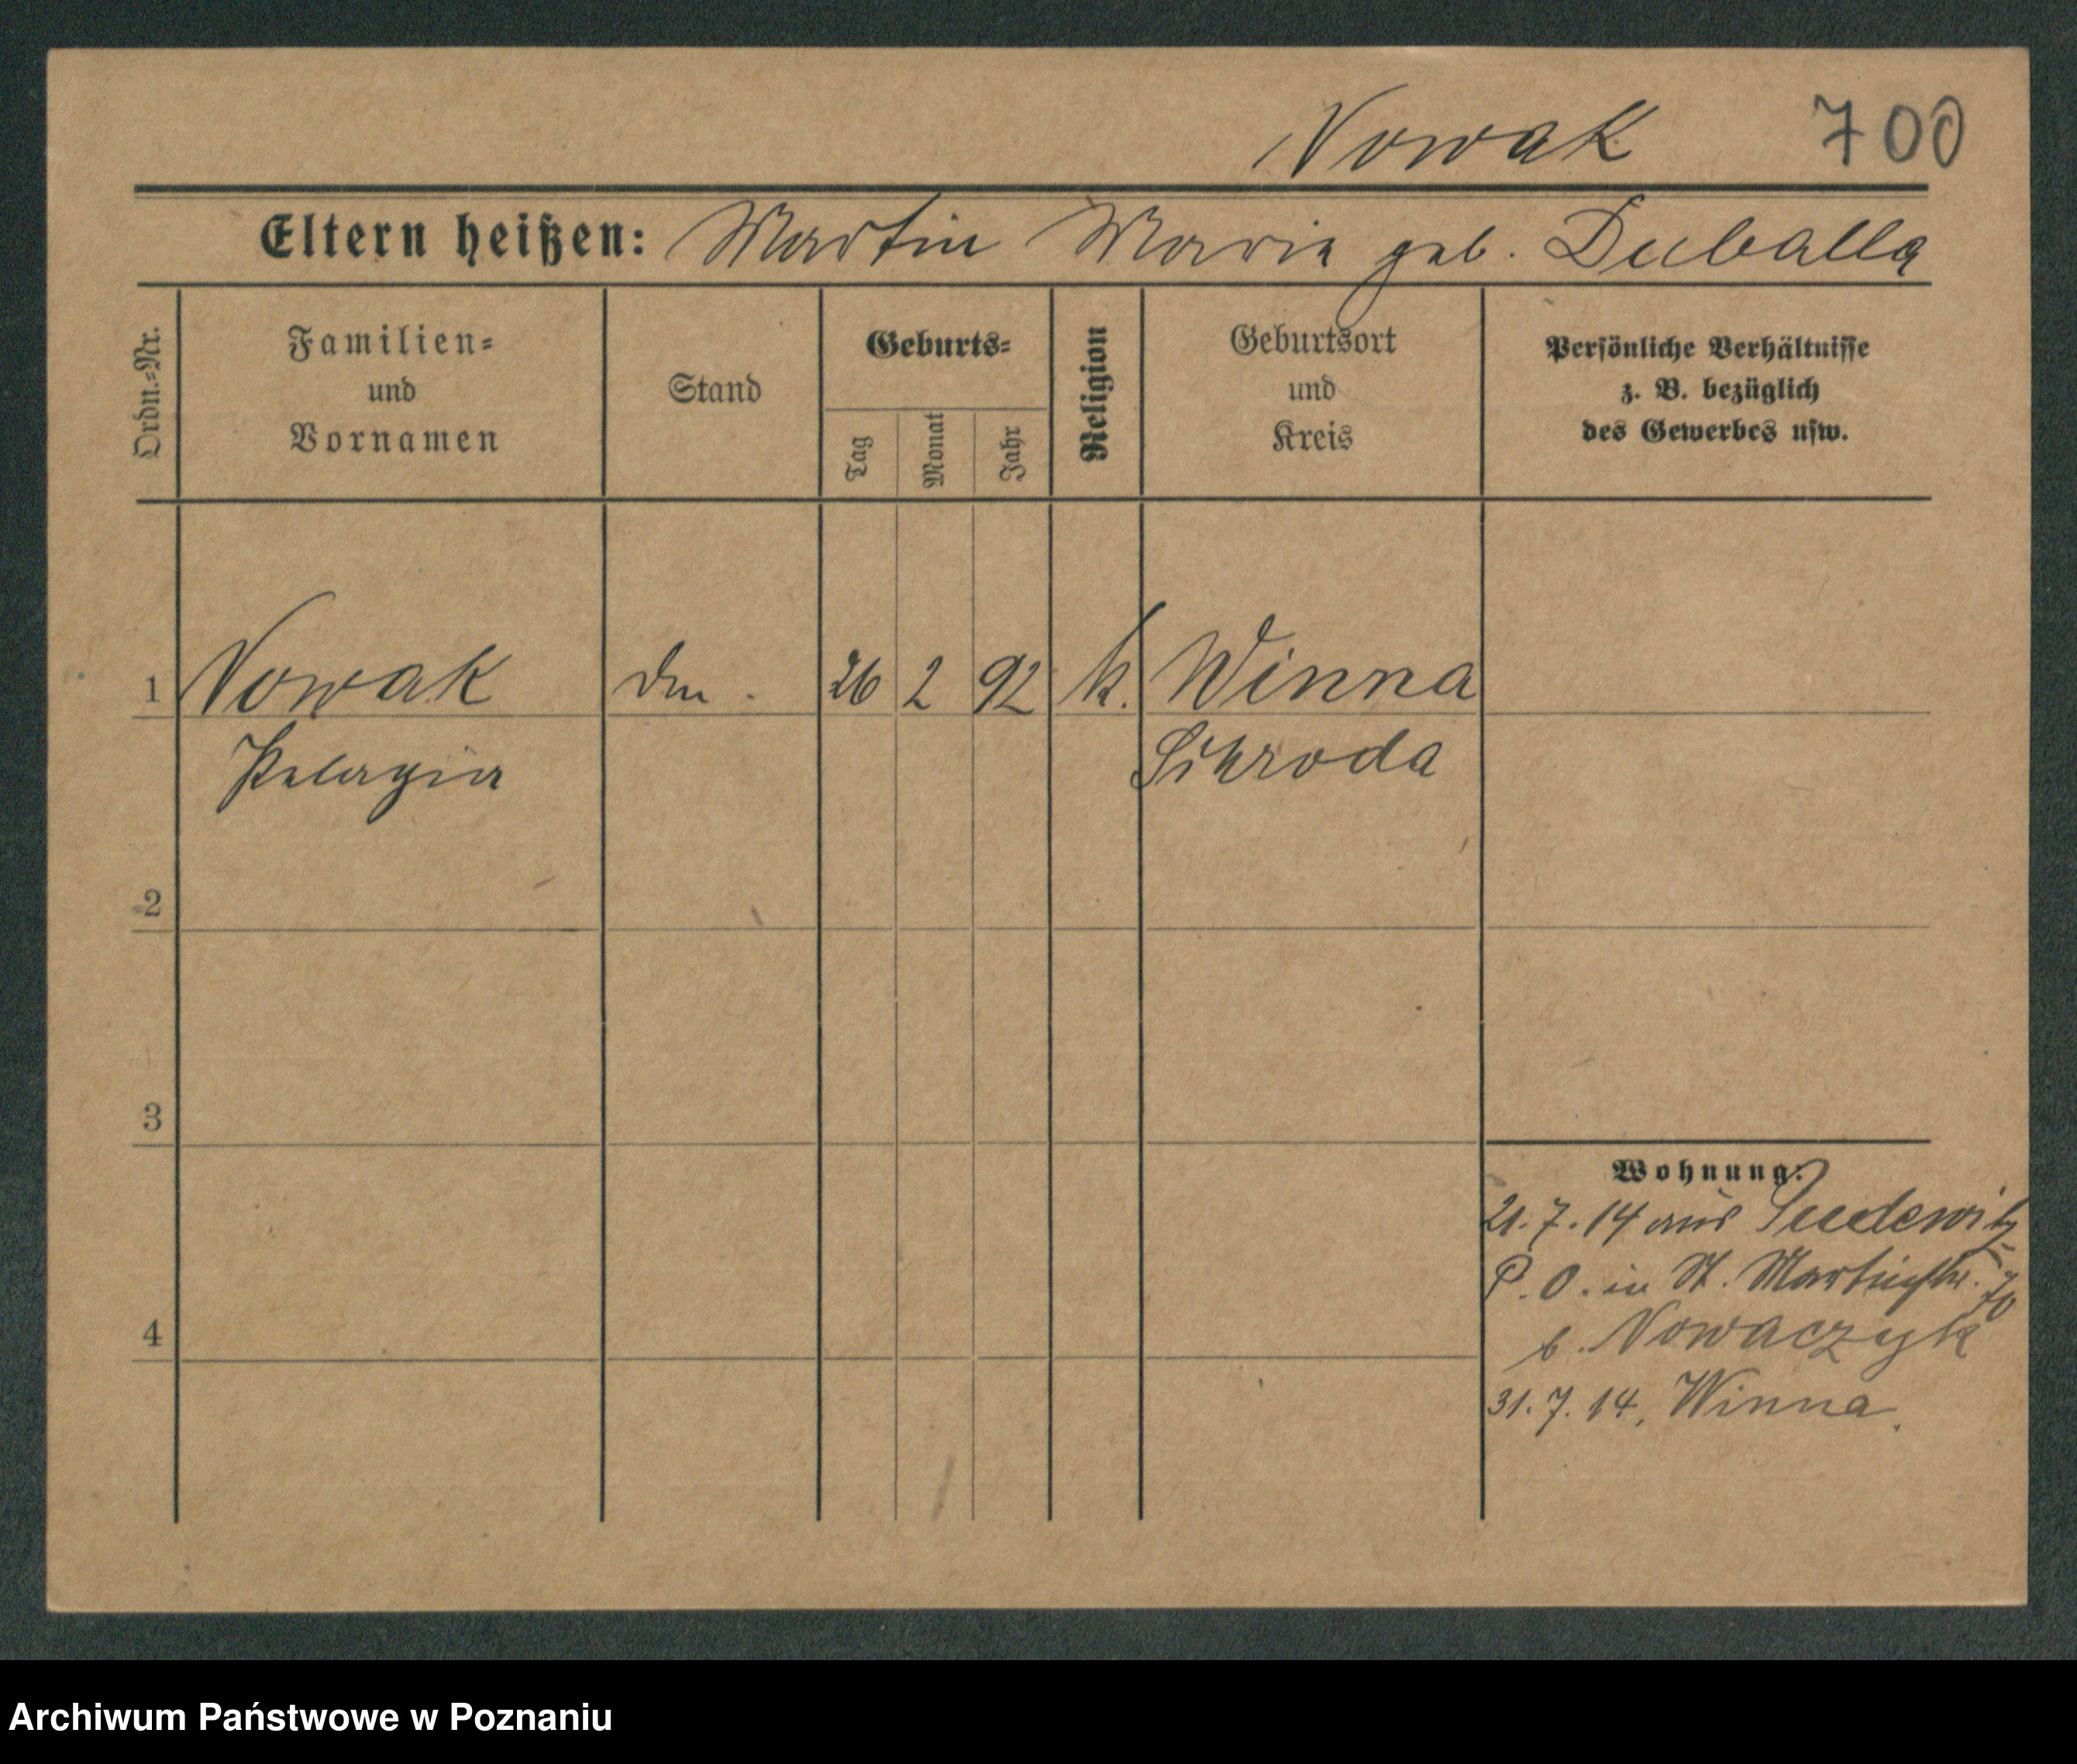 Nowak 700
Eltern heißen: Martin Marie geb. Duballa
Ordn.-Nr.
Familien-
und
Vornamen
Stand
Geburts-
Tag
Monat
Jahr
Religion
Geburtsort
und
Kreis
Persönliche Verhältnisse
z. B. bezüglich
des Gewerbes usw.
1 Nowak 26 2 92 k. Winna
Pelagia Schroda
2
3
Wohnung:
21.7.14 aus
P. O. in St. Martinstr.
4
b. Nowaczyk
31.7.14, Winna.
Archiwum Państwowe w Poznaniu